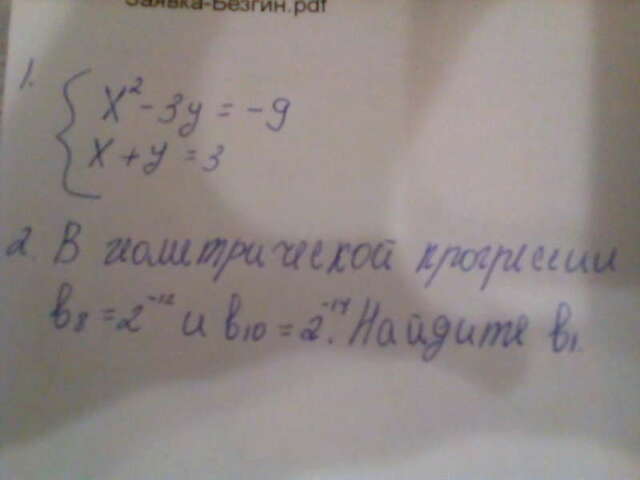 Заявка-Безгин.pdf
1.
x² - 3y = -9
x + y = 3
2. В геометрической прогрессии
b₈ = 2⁻¹² и b₁₀ = 2⁻¹⁴. Найдите b₁.